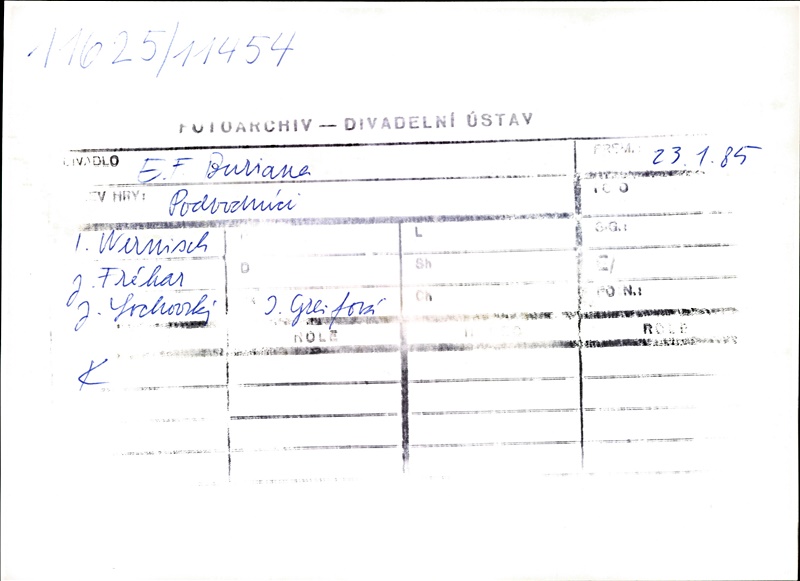 1/1625/11454
FOTOARCHIV — DIVADELNÍ ÚSTAV
DIVADLO E.F. Buriana PREM.: 23.1.85
EV HRY: Podvodníci
I. Wernisch L
J. Fréhar D Sh
J. Sochovský I. Greifová Ch PO N.:
ROLE ROLE
K